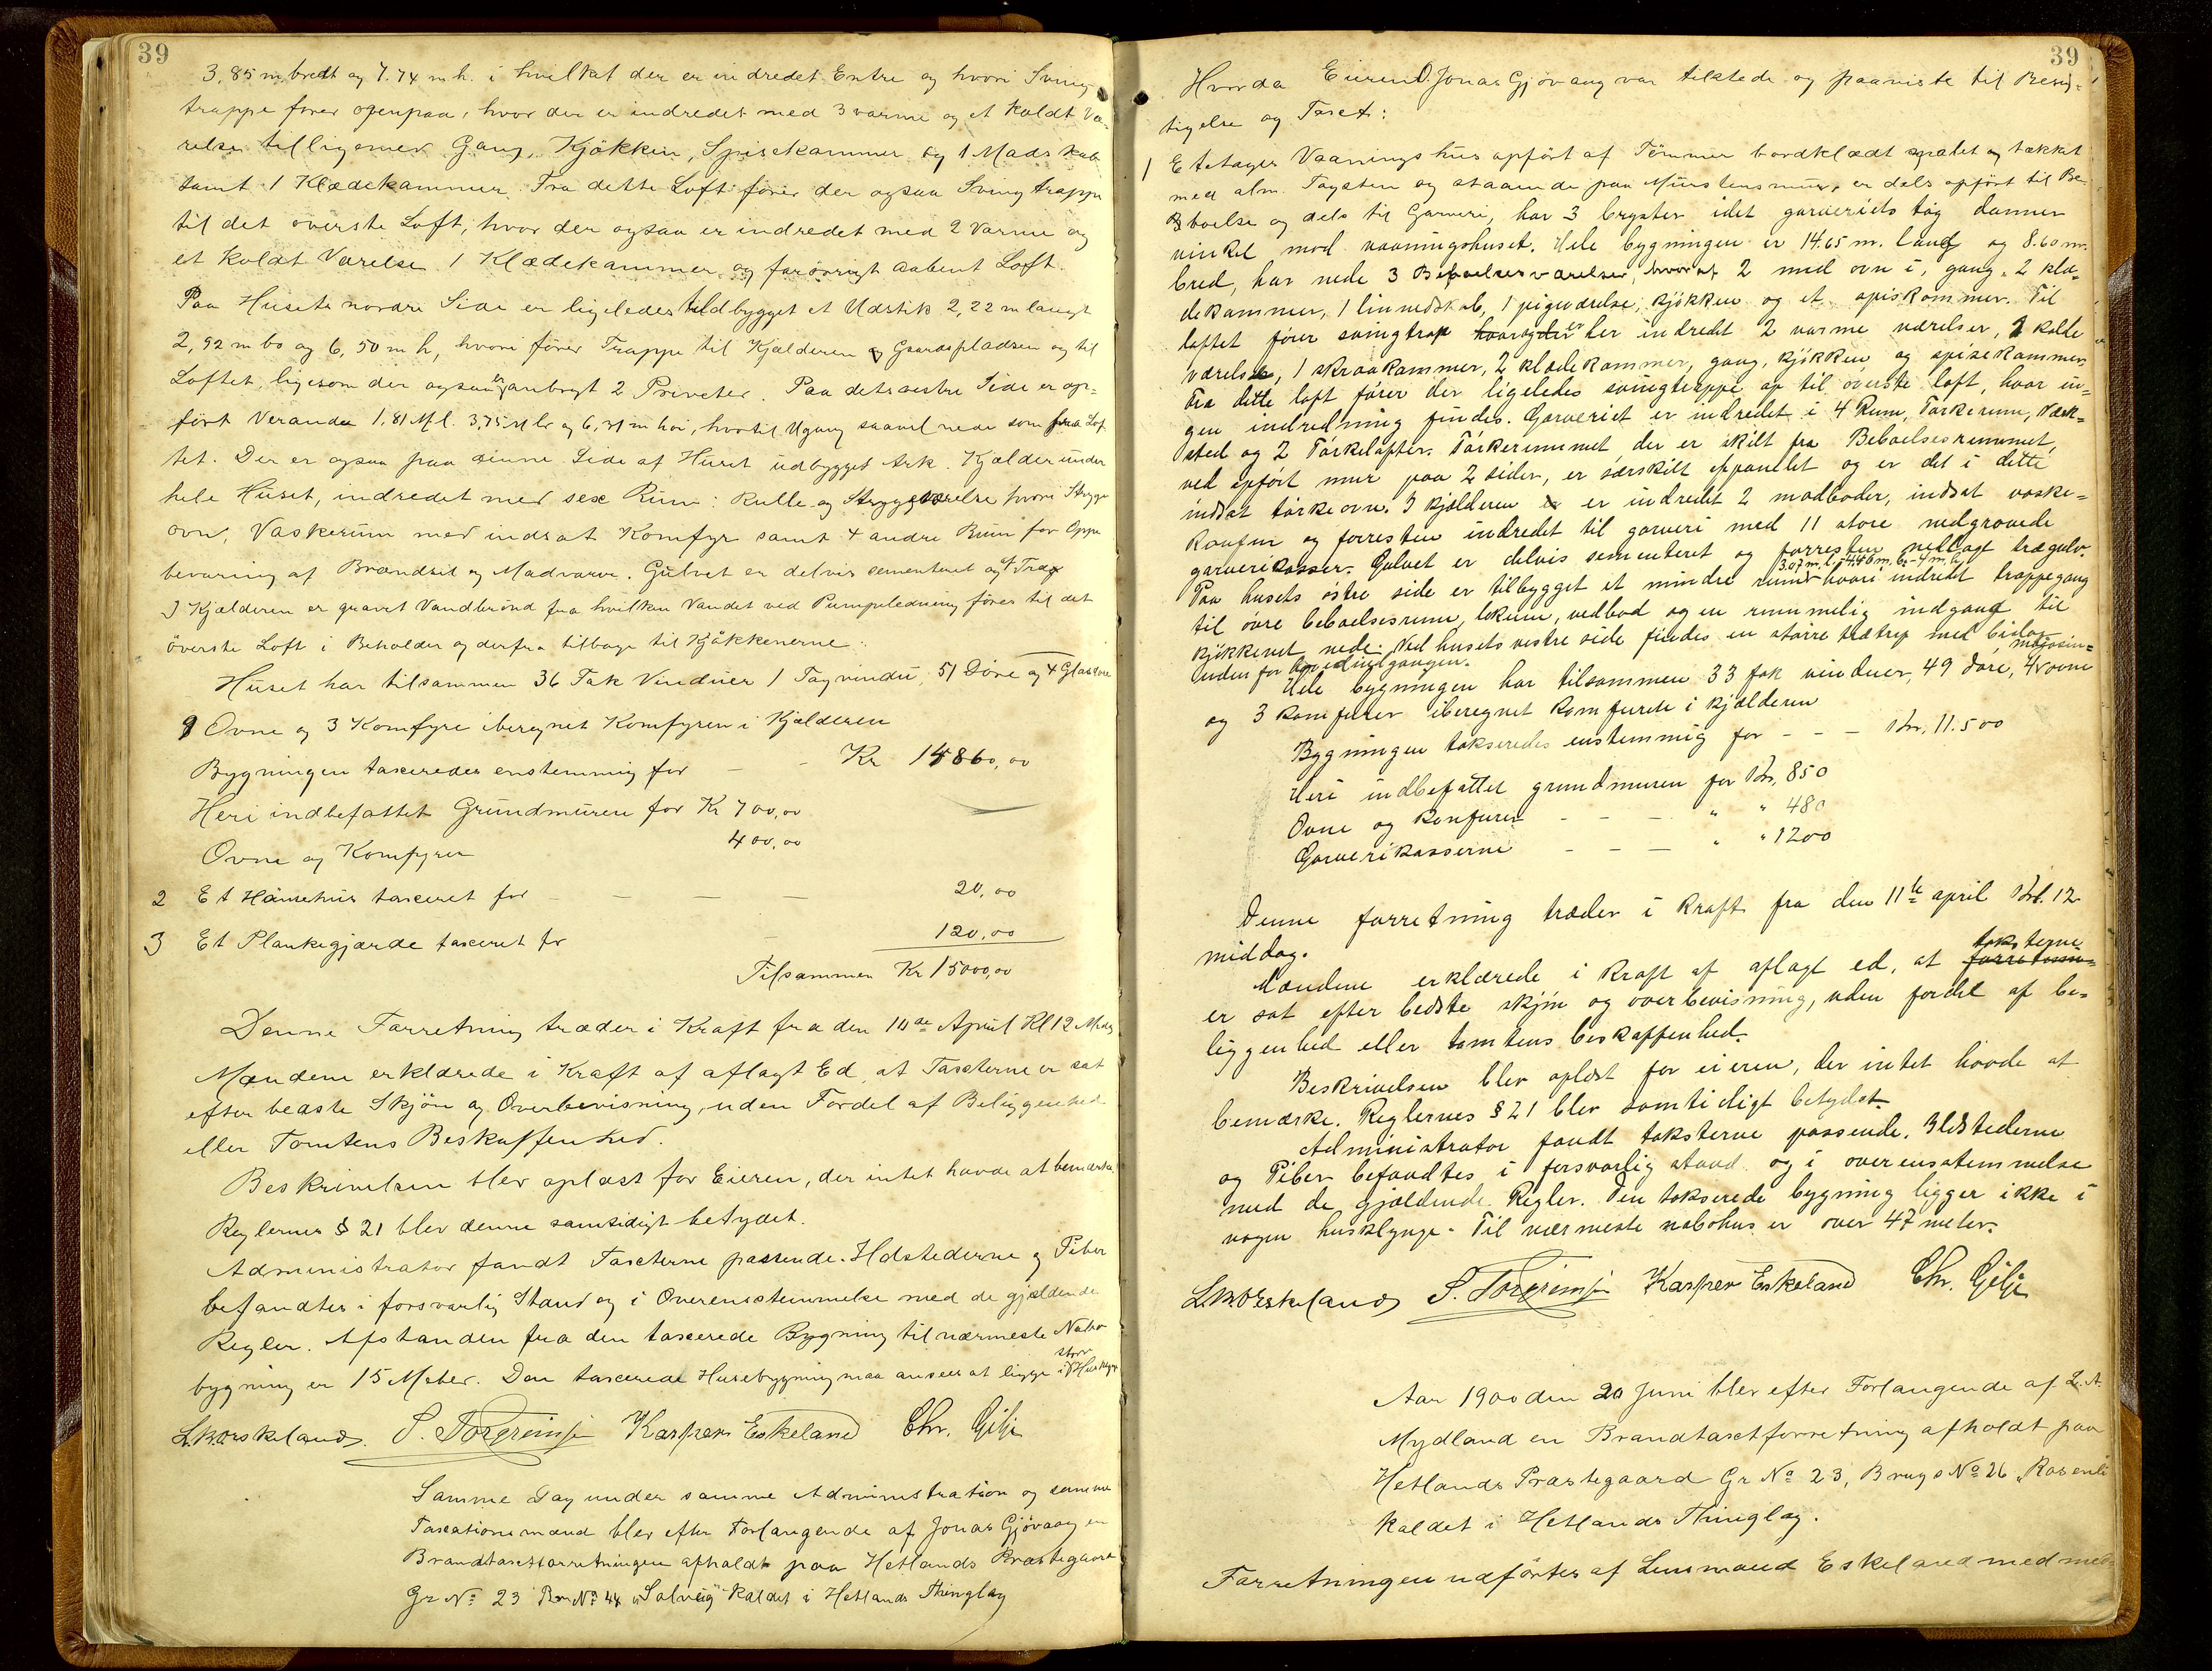 39
3,85 m bredt og 7.74 m h. i hvilket der er indredet Entre og hvori Sving
trappe fører ogenpaa, hvor der er indredet med 3 varme og et koldt Væ-
relse tilligemed Gang, Kjøkken, Spisekammer og 1 Madskab
samt 1 Klædekammer. Fra dette Loft fører der ogsaa Svingtrappe
til det øverste Loft, hvor der ogsaa er indredet med 2 varme og
et koldt Værelse 1 Klædekammer og forøvrigt aabent Loft.
Paa Husets nordre Side er ligeledes tilbygget et Udstik 2,22 m langt
2,92 m br og 6,50 m h, hvori fører Trappe til Kjælderen og Gaardspladsen og til
Loftet, ligesom der ogsaa er anbragt 2 Priveter. Paa dets vestre Side er op-
ført Veranda 1,81 M l. 3,75 M br og 6,31 m høi, hvortil Ugang saavel nede som fra Lof
tet. Der er ogsaa paa denne Side af Huset udbygget Ark. Kjælder under
hele Huset, indredet med sex Rum: Rulle og Strygeværelse hvori Stryge
ovn, Vaskerum med indsat Komfyr samt 4 andre Rum for Oppe
bevaring af Brændsel og Madvarer. Gulvet er delvis cementeret og af Træ
I Kjælderen er gravet Vandbrønd fra hvilken Vandet ved Pumpeledning føres til det
øverste Loft i Beholder og derfra tilbage til Kjøkkenerne.
Huset har tilsammen 36 Fak Vinduer 1 Tagvindu, 51 Døre og 4 Glasdøre
9 Ovne og 3 Komfyre iberegnet Komfyren i Kjælderen
Bygningen taxeredes enstemmig for - - Kr 14860,00
Heri indbefattet Grundmuren for Kr 700,00
Ovne og Komfyrer 400,00
2 Et Hønsehus taxeret for - - - - 20,00
3 Et Plankegjærde taxeret for - 120,00
Tilsammen Kr 15000,00
Denne Forretning træder i Kraft fra den 10de April Kl 12 Midd
Mændene erklærede i Kraft af aflagt Ed, at Taxterne er sat
efter bedste Skjøn og Overbevisning, uden Fordel af Beliggenhed
eller Tomtens Beskaffenhed.
Beskrivelsen blev oplæst for Eieren, der intet havde at bemærke
Reglernes § 21 blev denne samtidigt betydet.
Administrator fandt Taxterne passende. Ildstederne og Piber
befandtes i forsvarlig Stand og i Overensstemmelse med de gjældende
Regler. Afstanden fra den taxerede Bygning til nærmeste Nabo
bygning er 15 Meter. Den taxerede Husebygning maa ansees at ligge i større Husklynge
L. M. Eskeland. S. Torgrimsen Kasper Eskeland Chr. Gilje
Samme Dag under samme Administration og samme
Taxationsmænd blev efter Forlangende af Jonas Gjøvaag en
Brandtaxtforretningen afholdt paa Hetlands Præstegaard
Gr No 23 Br No 44 "Solveig" kaldet i Hetlands Thinglag
39
Hvorda Eieren O. Jonas Gjøvaag var tilstede og paaviste til Besig-
tigelse og Taxt:
1 Et etages Vaaningshus opført af Tømmer bordklædt malet og tækket
med alm. Tagsten og staaende paa Murstensmur, er dels opført til Be-
boelse og dels til Garveri, har 3 bryster idet garveriets tag danner
vinkel mod vaaningshuset. Hele bygningen er 14.65 m. lang og 8.60 m.
bred, har nede 3 Beboelsesværelser, hvoraf 2 med ovn i, gang, 2 klæ-
dekammer, 1 linnedskab, 1 pigeværelse, kjøkken og et spiskammer. Til
loftet fører svingtrap hvorogder er her indredet 2 varme værelser, 2 kolde
værelse, 1 skraakammer, 2 klædekammer, gang, kjøkken og spisekammer.
Fra dette loft fører der ligeledes svingtrappe op til øverste loft, hvor in-
gen indredning findes. Garveriet er indredet i 4 Rum, Tørkerum, Værk-
sted og 2 Tørkelofter. Tørkerummet der er skilt fra Beboelsesrummet,
ved opført mur paa 2 sider, er særskilt oppanelet og er det i dette
indsat tørkeovn. I kjælderen er indredet 2 madboder, indsat vaske-
komfur og forresten indredet til garveri med 11 store nedgravede
garverikasser. Gulvet er delvis sementeret og forresten nedlagt trægulv.
Paa husets østre side er tilbygget et mindre rum 3.07 m. l. - 4.46 m. b. - 4 m. h. hvori indredet trappegang
til øvre beboelsesrum, lokum, vedbod og en rummelig indgang til
kjøkkenet nede. Ved husets vestre side findes en større trætrap med bislag
uden for hovedindgangen.
Hele bygningen har tilsammen 33 fak vinduer, 49 døre, 4 magasinovne
og 3 komfurer iberegnet komfuret i kjælderen
Bygningen takseredes enstemmig for - - - Kr. 11.500
Heri indbefattet grundmuren for Kr. 850
Ovne og komfurer - - - " " 480
Garverikasserne - - - " " 1200
Denne forretning træder i kraft fra den 11te april Kl. 12
middag.
Mændene erklærede i kraft af aflagt ed, at taksterne
er sat efter bedste skjøn og overbevisning, uden fordel af be-
liggenhed eller tomtens beskaffenhed.
Beskrivelsen blev oplæst for eieren, der intet havde at
bemærke. Reglernes § 21 blev samtidigt betydet.
Administrator fandt taksterne passende. Ildstederne
og Piber befandtes i forsvarlig stand og i overensstemmelse
med de gjældende Regler. Den takserede bygning ligger ikke i
nogen husklynge. Til nærmeste nabohus er over 47 meter.
L. M. Eskeland S. Torgrimsen Kasper Eskeland Chr. Gilje
Aar 1900 den 20 Juni blev efter Forlangende af L. A.
Mydland en Brandtaxtforretning afholdt paa
Hetlands Præstegaard Gr No 23, Brugs No 26 "Rosenli
kaldet i Hetlands Thinglag.
Forretningen udførtes af Lensmand Eskeland med